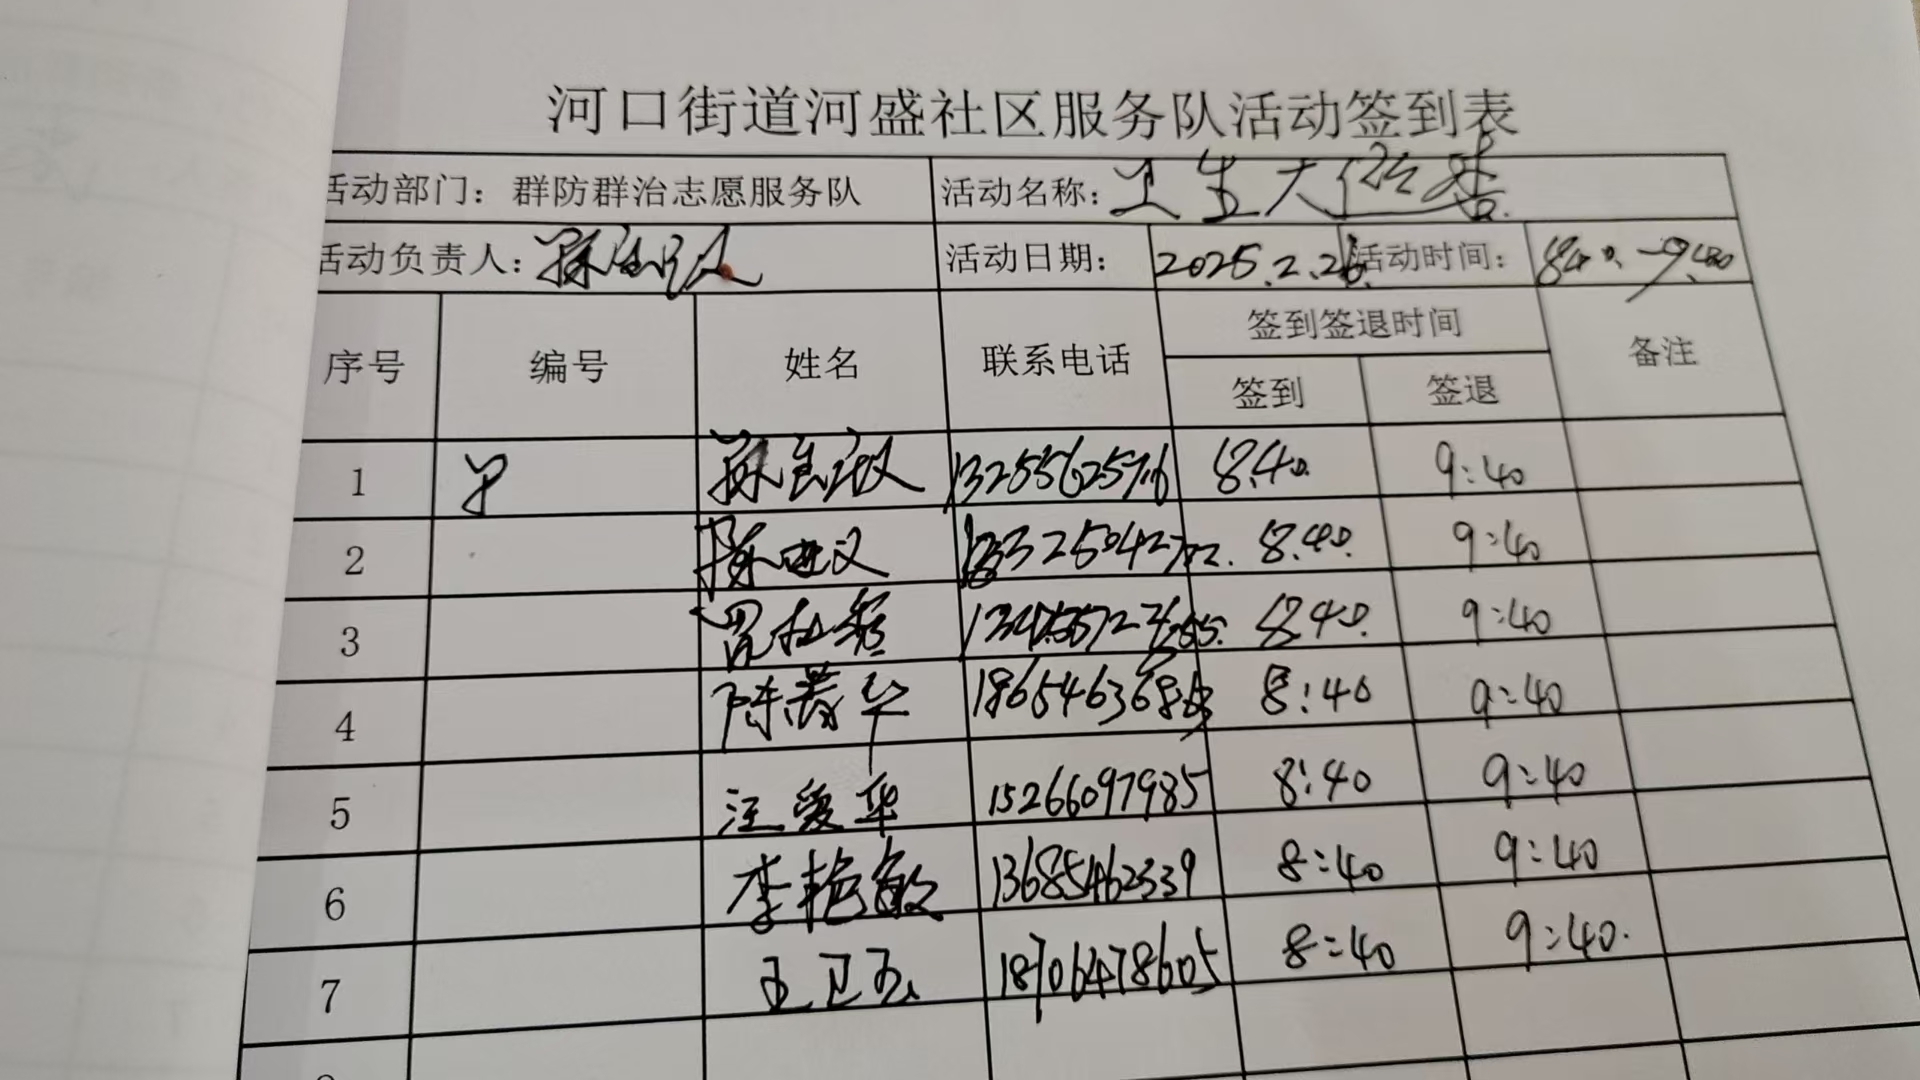 河口街道河盛社区服务队活动签到表
活动部门：群防群治志愿服务队 活动名称：卫生大检查
活动负责人： 活动日期： 2025.2.26 活动时间： 8:40-9:40
序号 编号 姓名 联系电话 签到签退时间 备注
签到 签退
1 8:40 9:40
2 8:40 9:40
3 8:40 9:40
4 8:40 9:40
5 汪爱华 15266097985 8:40 9:40
6 李艳敏 13685462339 8:40 9:40
7 王卫玉 18706478605 8:40 9:40